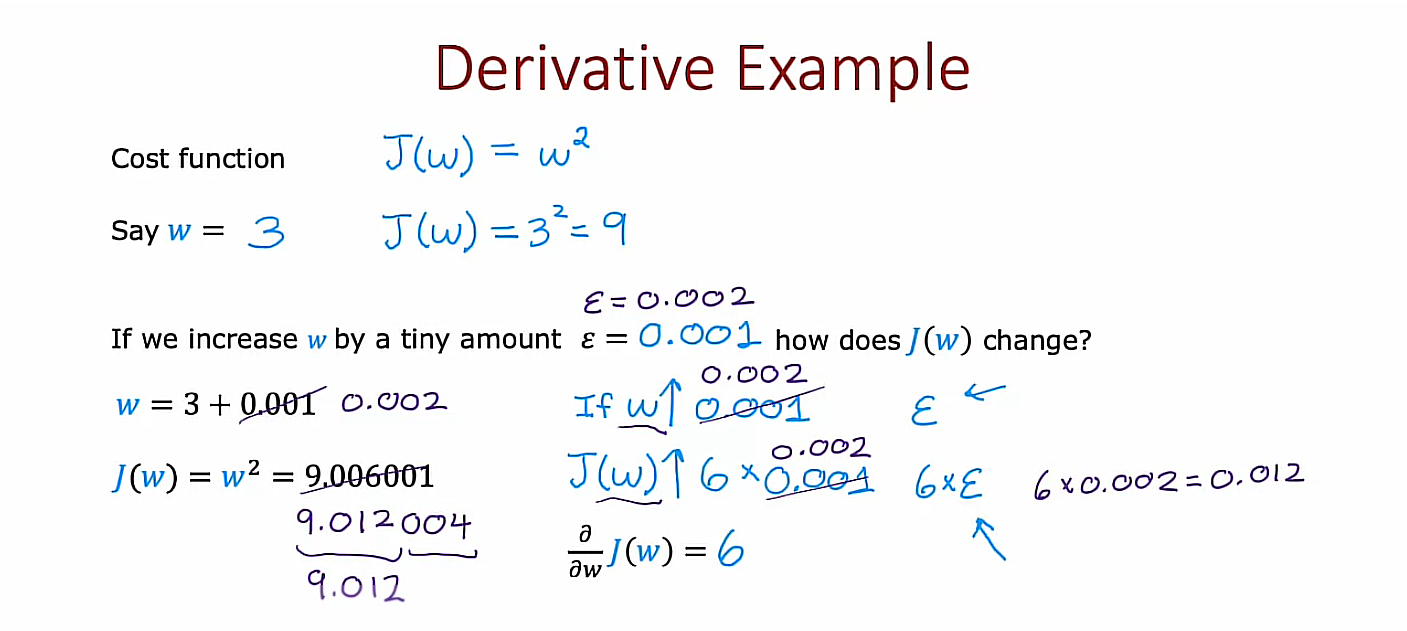 Derivative Example
Cost function J(w) = w²
Say w = 3 J(w) = 3² = 9
ε = 0.002
If we increase w by a tiny amount ε = 0.001 how does J(w) change?
0.002
w = 3 + 0.001 0.002 If w↑ 0.001 ε ←
0.002
J(w) = w² = 9.006001 J(w)↑ 6 × 0.001 6×ε 6×0.002=0.012
9.012004
∂/∂w J(w) = 6
9.012